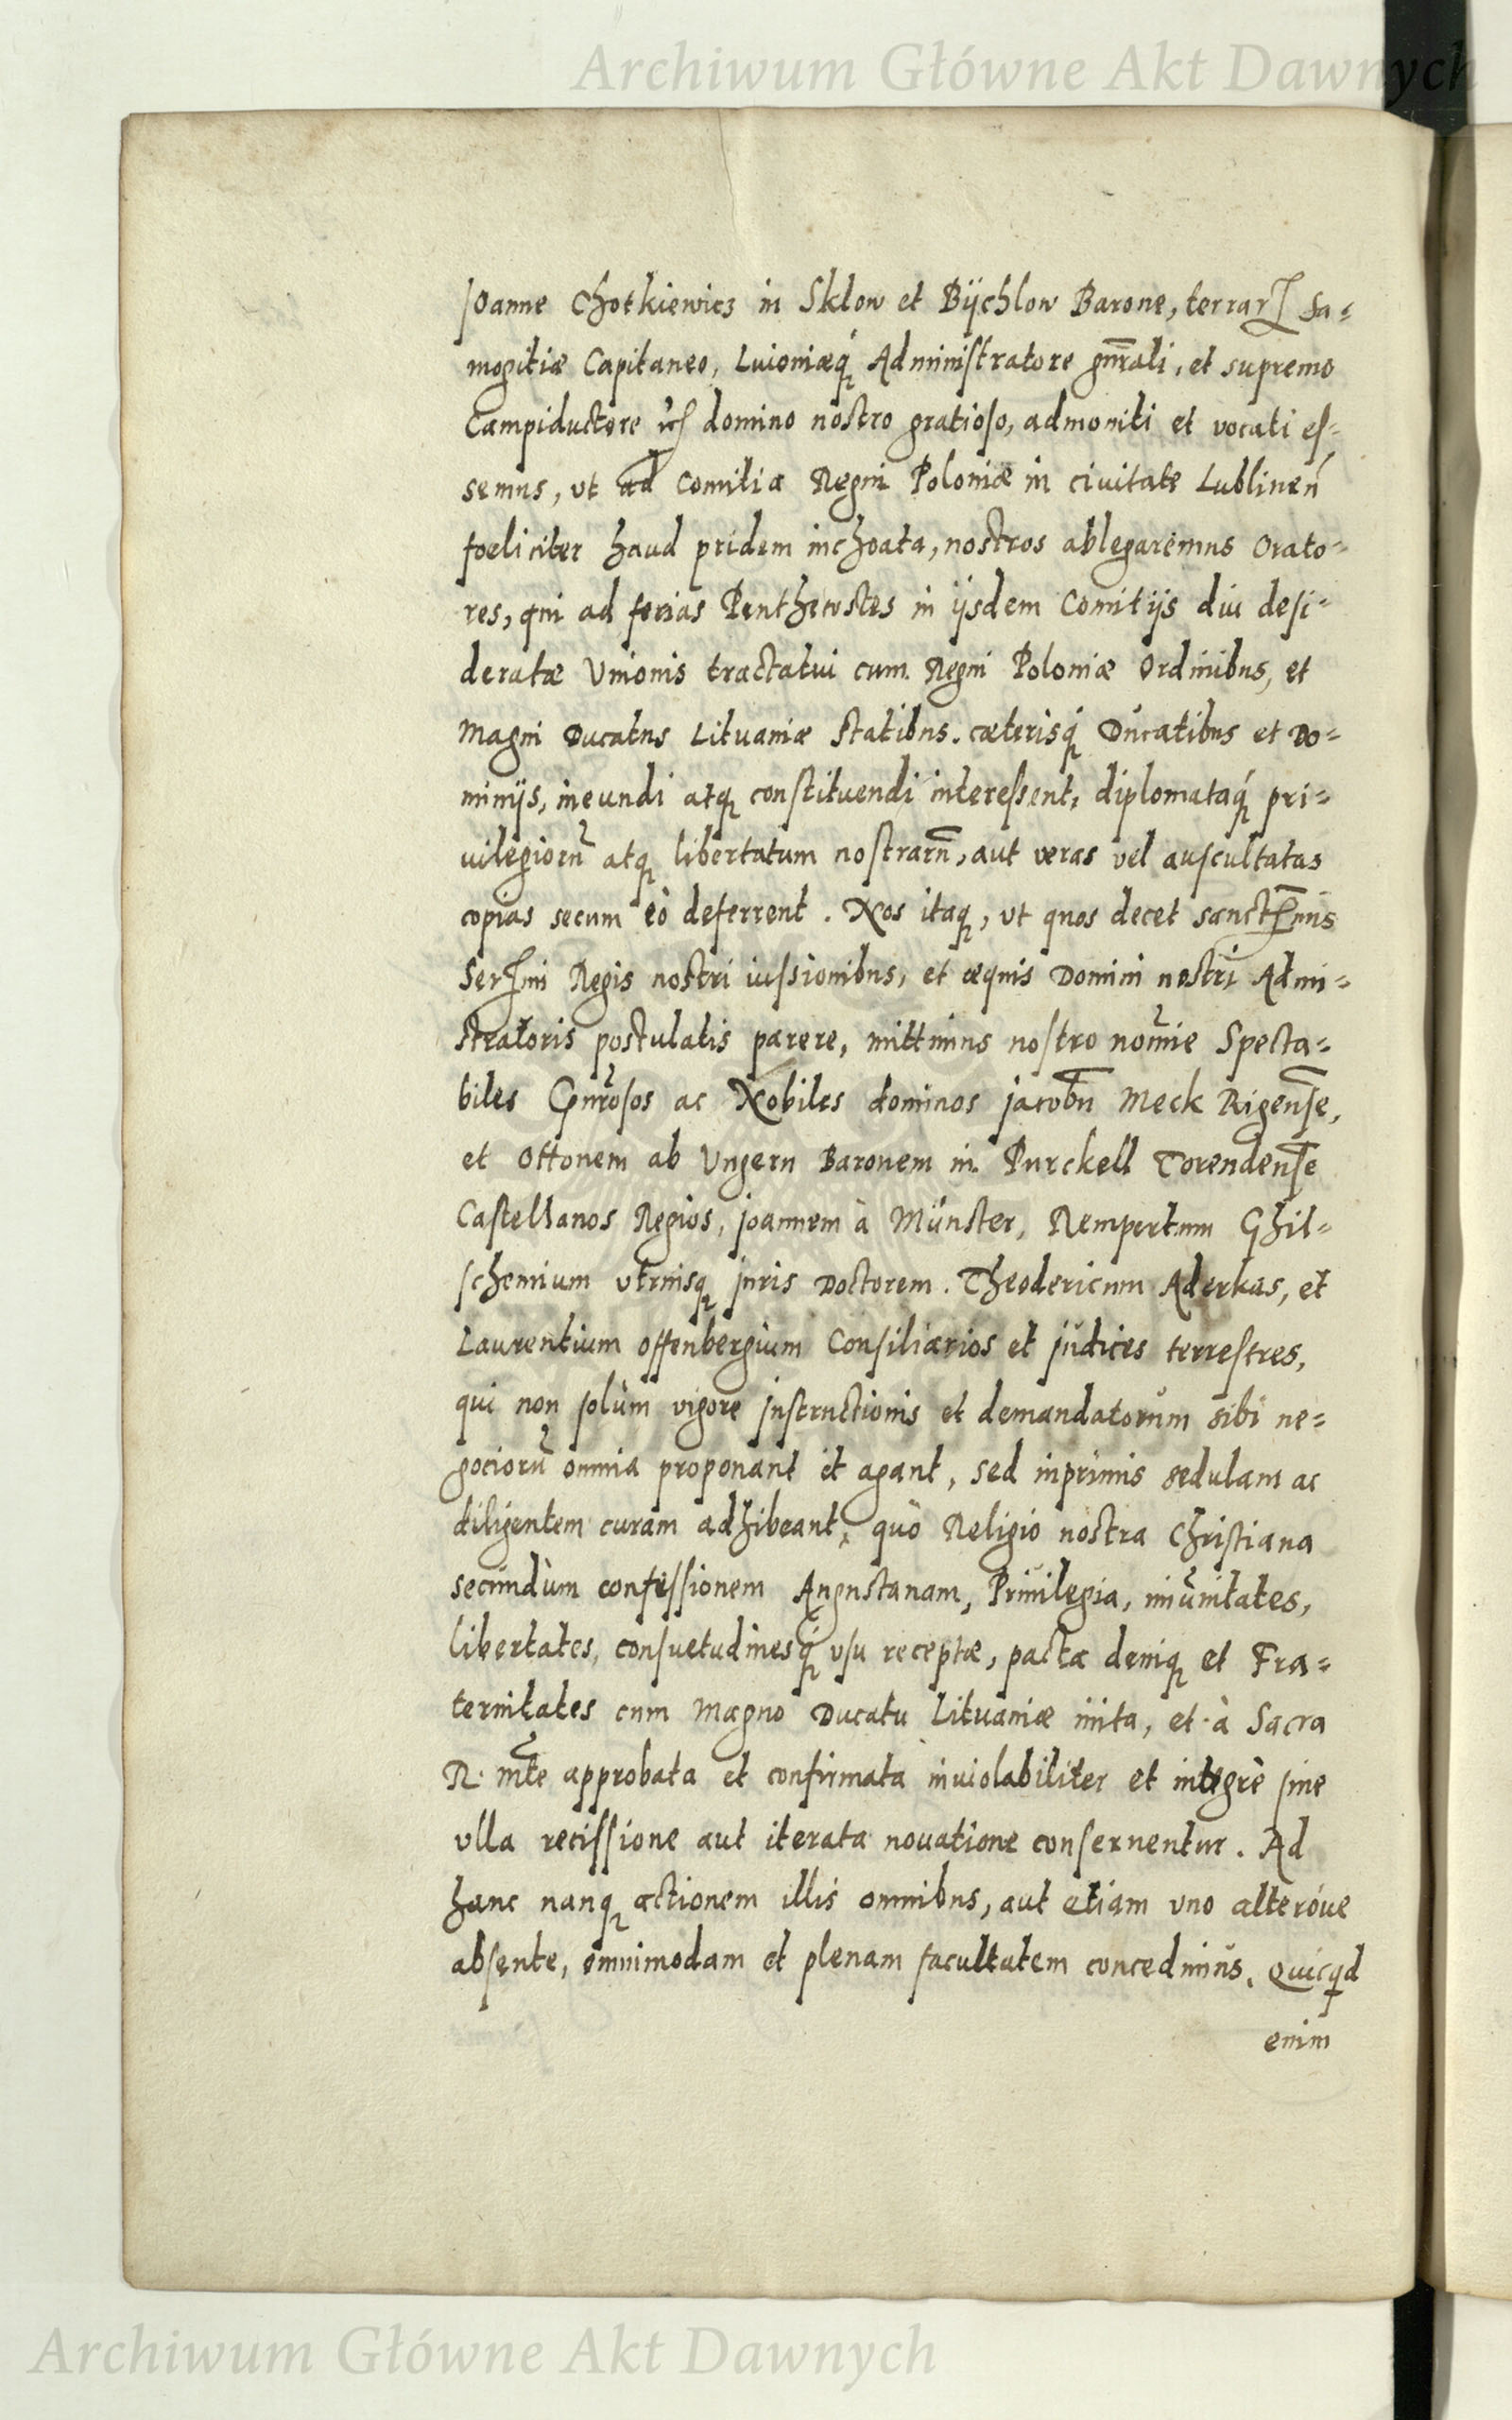 Archiwum Główne Akt Dawnych
Joanne Chotkiewicz in Sklow et Bÿchlow Barone, terrarꝝ Sa=
mogitiæ Capitaneo, Liuoniæq́ Administratore gnr̄ali, et supremo
Campiductore domino nostro gratioso, admoniti et vocati es-
semus, vt ad Comitia Regni Poloniæ in ciuitate Lublineń
foeliciter haud pridem inchoata, nostros ablegaremus Orato=
res, qui ad ferias Penthecostes in ijsdem Comitijs diu desi=
deratæ Vnionis tractatui cum Regni Poloniæ Ordinibus, et
Magni Ducatus Lituaniæ Statibus. cæterisq́ Ducatibus et Do=
minijs, ineundi atq constituendi interessent, diplomataq́ pri=
uilegiorū atq libertatum nostrarū, aut veras vel auscultatas
copias secum eò deferrent. Nos itaq, vt quos decet sanctꝭmis
Serꝭmi Regis nostri iussionibus, et æquis Domini nostri Admi=
stratoris postulatis parere, mittimus nostro nom̄ie Specta=
biles Gn̄rosos ac Nobiles dominos Jacobū Meck Rigensē,
et Ottonem ab Vngern Baronem in Purckell Torendensē
Castellanos Regios, Joannem à Münster, Rempertum Ghil=
schemium vtriusq juris Doctorem. Theodericum Aderkas, et
Laurentium Offenbergium Consiliarios et judices terrestres,
qui non solùm vigore Instructionis et demandatorum sibi ne=
gociorū omnia proponant et agant, sed inprimis sedulam ac
diligentem curam adhibeant, quò Religio nostra Christiana
secundùm confessionem Augustanam, Priuilegia, im̄unitates,
libertates, consuetudinesq́ vsu receptæ, pacta deniq et Fra=
ternitates cum Magno Ducatu Lituaniæ inita, et à Sacra
R. Mt̄e approbata et confirmata inuiolabiliter et integrè sine
vlla recissione aut iterata nouatione conseruentur. Ad
hanc nanq actionem illis omnibus, aut etiam vno alteróue
absente, omnimodam et plenam facultatem concedimus. Quicqd
enim
Archiwum Główne Akt Dawnych